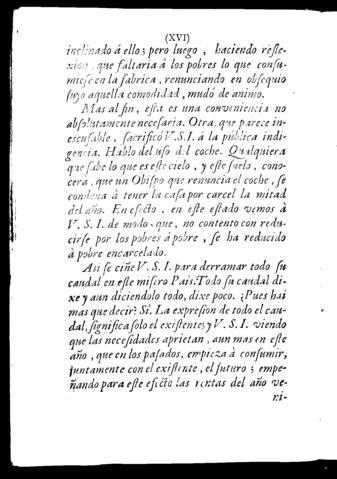 (XVI)
inclinado á ello; pero luego, haciendo refle-
xion, que faltaria á los pobres lo que consu-
miese en la fabrica, renunciando en obsequio
suyo aquella comodidad, mudó de animo.
Mas al fin, esta es una conveniencia no
absolutamente necesaria. Otra, que parece in-
escusable, sacrificó V.S.I. á la pùblica indi-
gencia. Hablo del uso del coche. Qualquiera
que sabe lo que es este cielo, y este suelo, cono-
cerá, que un Obispo que renuncia el coche, se
condena à tener la casa por carcel la mitad
del año. En efecto, en este estado vemos à
V. S. I. de modo, que, no contento con redu-
cirse por los pobres á pobre, se ha reducido
à pobre encarcelado.
Asi se ciñe V. S. I. para derramar todo su
caudal en este misero País. Todo su caudal di-
xe y aun diciendolo todo, dixe poco. ¿Pues hai
mas que decir? Sí. La expresion de todo el cau-
dal, significa solo el existente; y V. S. I. viendo
que las necesidades aprietan, aun mas en este
año, que en los pasados, empieza à consumir,
juntamente con el existente, el futuro; empe-
ñando para este efecto las rentas del año ve-
ni-